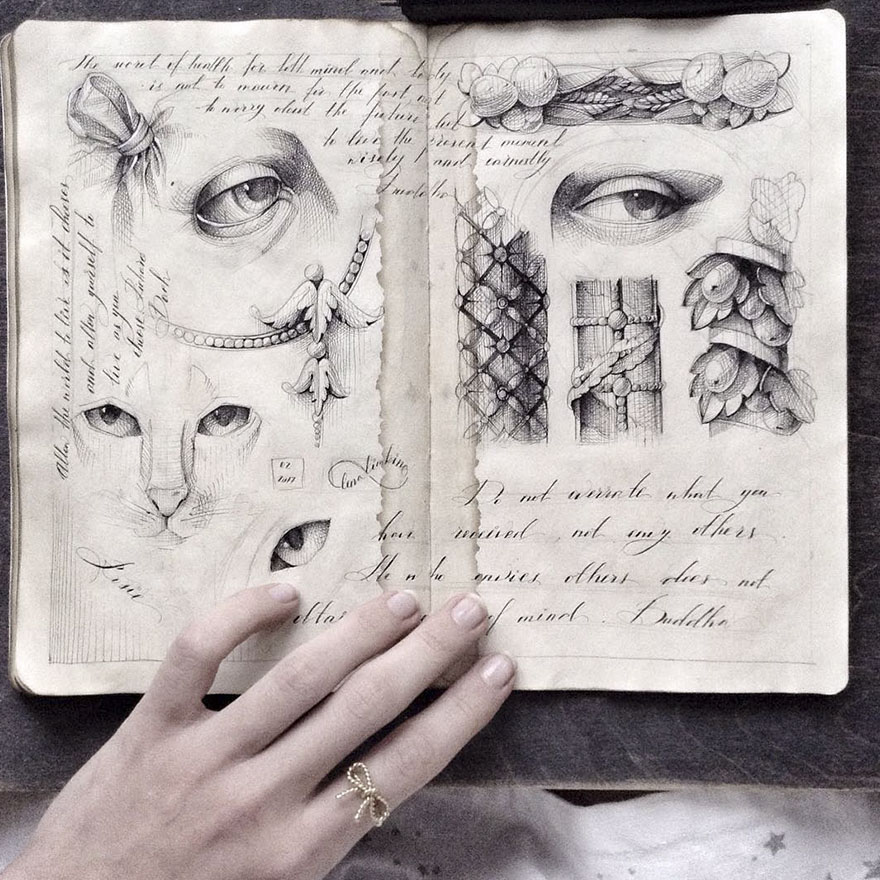 The secret of health for both mind and body
is not to mourn for the past, not
to worry about the future, but
to live the present moment
wisely and earnestly
Buddha
Allow the world to live as it chooses
and allow yourself to
live as you
choose
02
2017
Do not overrate what you
have received, not envy others.
He who envies others does not
of mind. Buddha